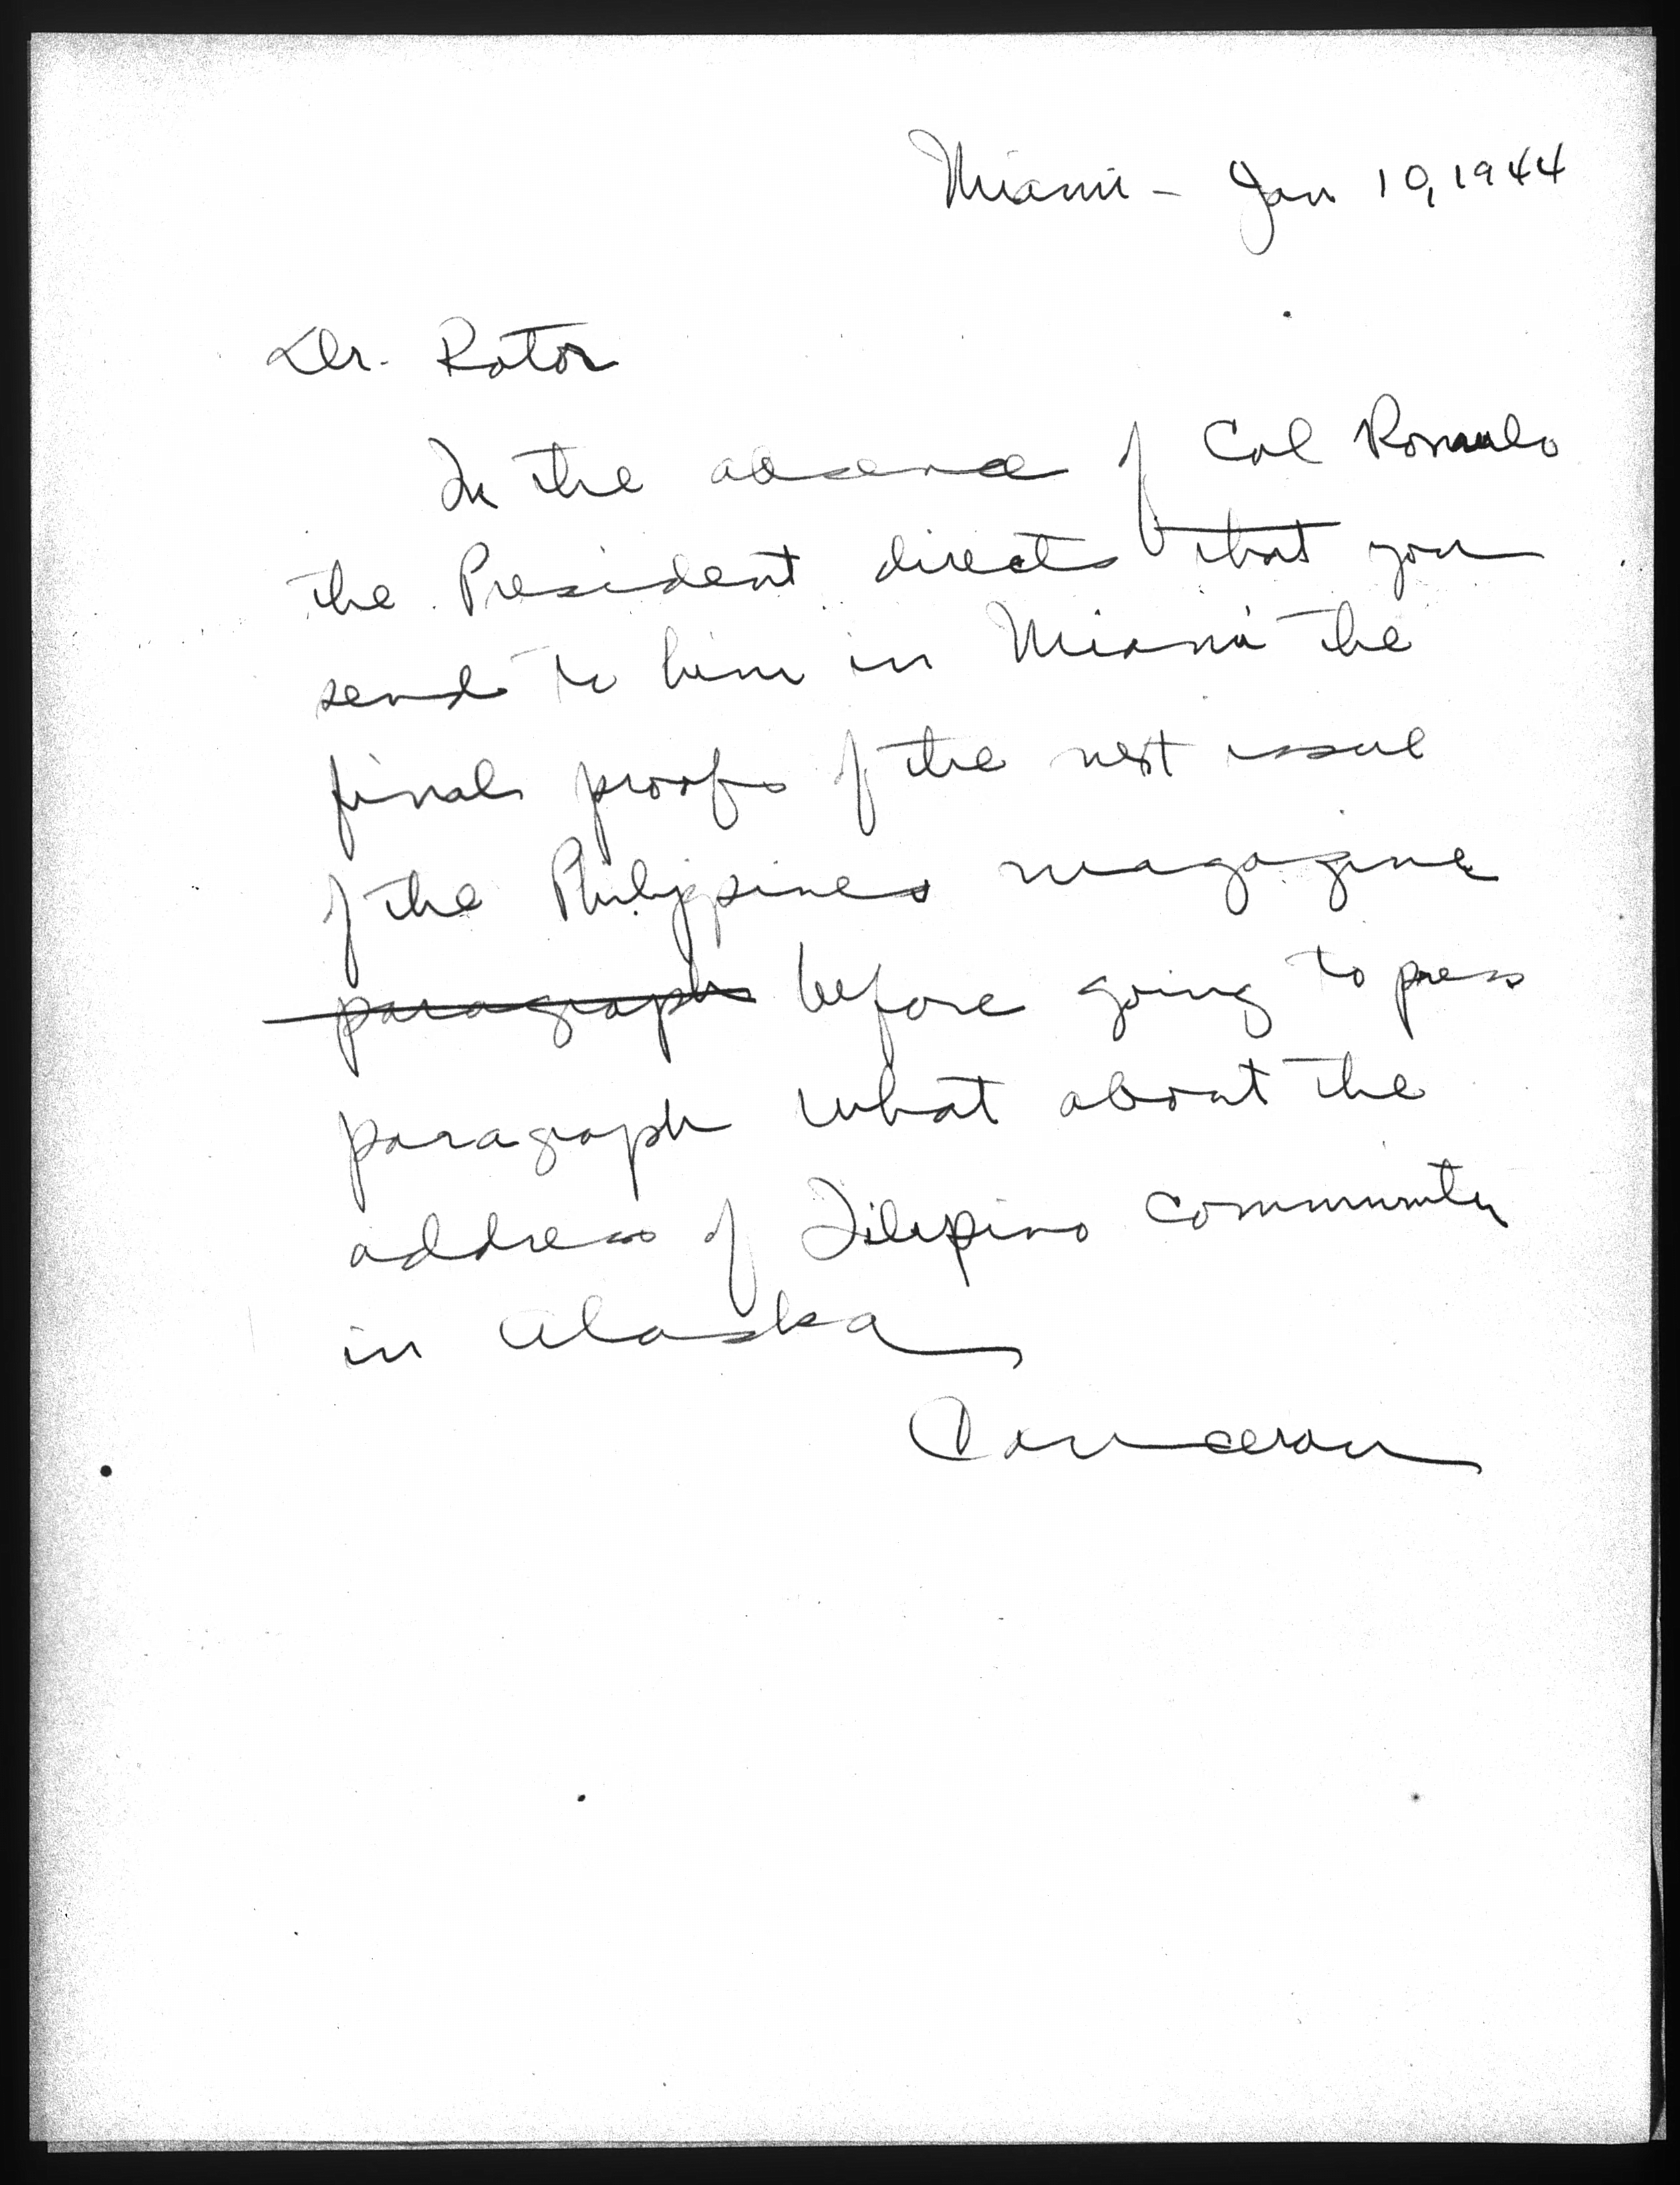 Miami - Jan 10, 1944
Dr. Rotor
In the absence of Col Romulo
the President directs that you
send to him in Miami the
final proofs of the next issue
of the Philippines magazine
paragraph before going to press
paragraph what about the
address of Filipino community
in Alaska
Canceran